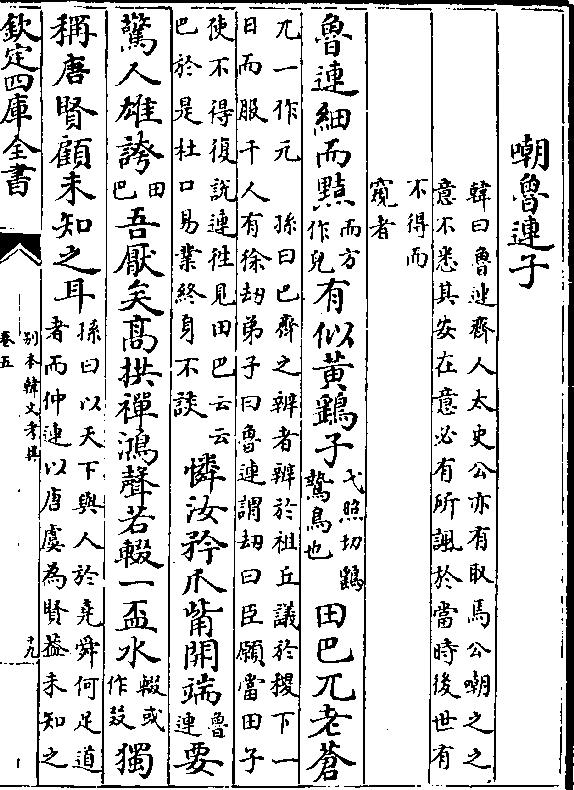 嘲魯連子
韓曰魯連齊人太史公亦有取馬公嘲之之
意不悉其安在意必有所諷於當時後世有
不得而
窺者
魯連細而黠 而方作兒 有似黃鷂子 弋照切鷂鷙鳥也 田巴兀老蒼
兀一作元 孫曰巴齊之辨者辨於祖丘議於稷下一
日而服千人有徐劫弟子曰魯連謂劫曰臣願當田子
使不得復説連徃見田巴云云
巴於是杜口易業終身不談 憐汝矜爪觜開端 魯連 要
驚人雄誇 田巴 吾厭矣高拱禪鴻聲若輟一盃水 輟或作 獨
稱唐賢顧未知之耳 孫曰以天下與人於堯舜何足道
者而仲連以唐虞為賢葢未知之
欽定四庫全書
别本韓文考異
卷五
十九